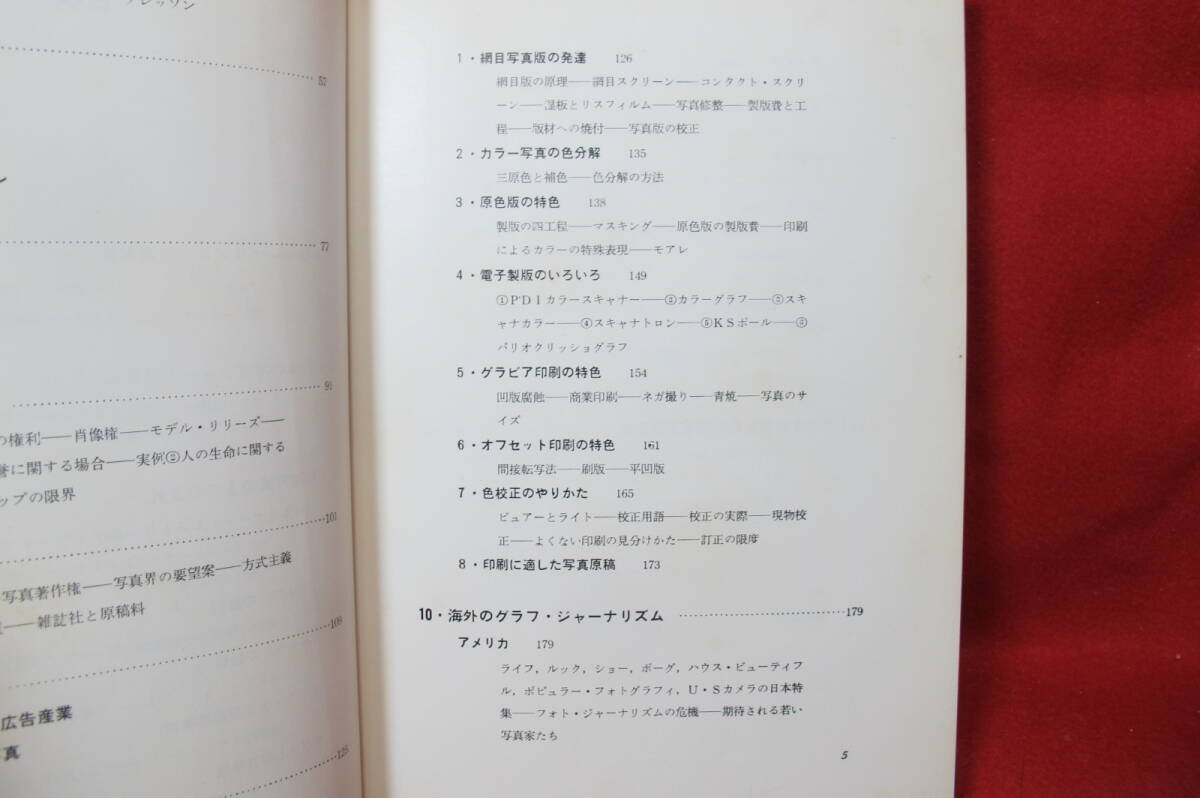 アレッソン
53
レ
77
91
の権利――肖像権――モデル・リリーズ――
誉に関する場合――実例②人の生命に関する
ップの限界
101
写真著作権――写真界の要望案――方式主義
――雑誌社と原稿料
109
広告産業
真
125
1・網目写真版の発達 126
網目版の原理――網目スクリーン――コンタクト・スクリ
ーン――湿板とリスフィルム――写真修整――製版費と工
程――版材への焼付――写真版の校正
2・カラー写真の色分解 135
三原色と補色――色分解の方法
3・原色版の特色 138
製版の四工程――マスキング――原色版の製版費――印刷
によるカラーの特殊表現――モアレ
4・電子製版のいろいろ 149
①PDIカラースキャナー――②カラーグラフ――③スキ
ャナカラー――④スキャナトロン――⑤KSボール――⑥
バリオクリッショグラフ
5・グラビア印刷の特色 154
凹版腐蝕――商業印刷――ネガ撮り――青焼――写真のサ
イズ
6・オフセット印刷の特色 161
間接転写法――刷版――平凹版
7・色校正のやりかた 165
ビュアーとライト――校正用語――校正の実際――現物校
正――よくない印刷の見分けかた――訂正の限度
8・印刷に適した写真原稿 173
10・海外のグラフ・ジャーナリズム ……………………179
アメリカ 179
ライフ，ルック，ショー，ボーグ，ハウス・ビューティフ
ル，ポピュラー・フォトグラフィ，U・Sカメラの日本特
集――フォト・ジャーナリズムの危機――期待される若い
写真家たち
5